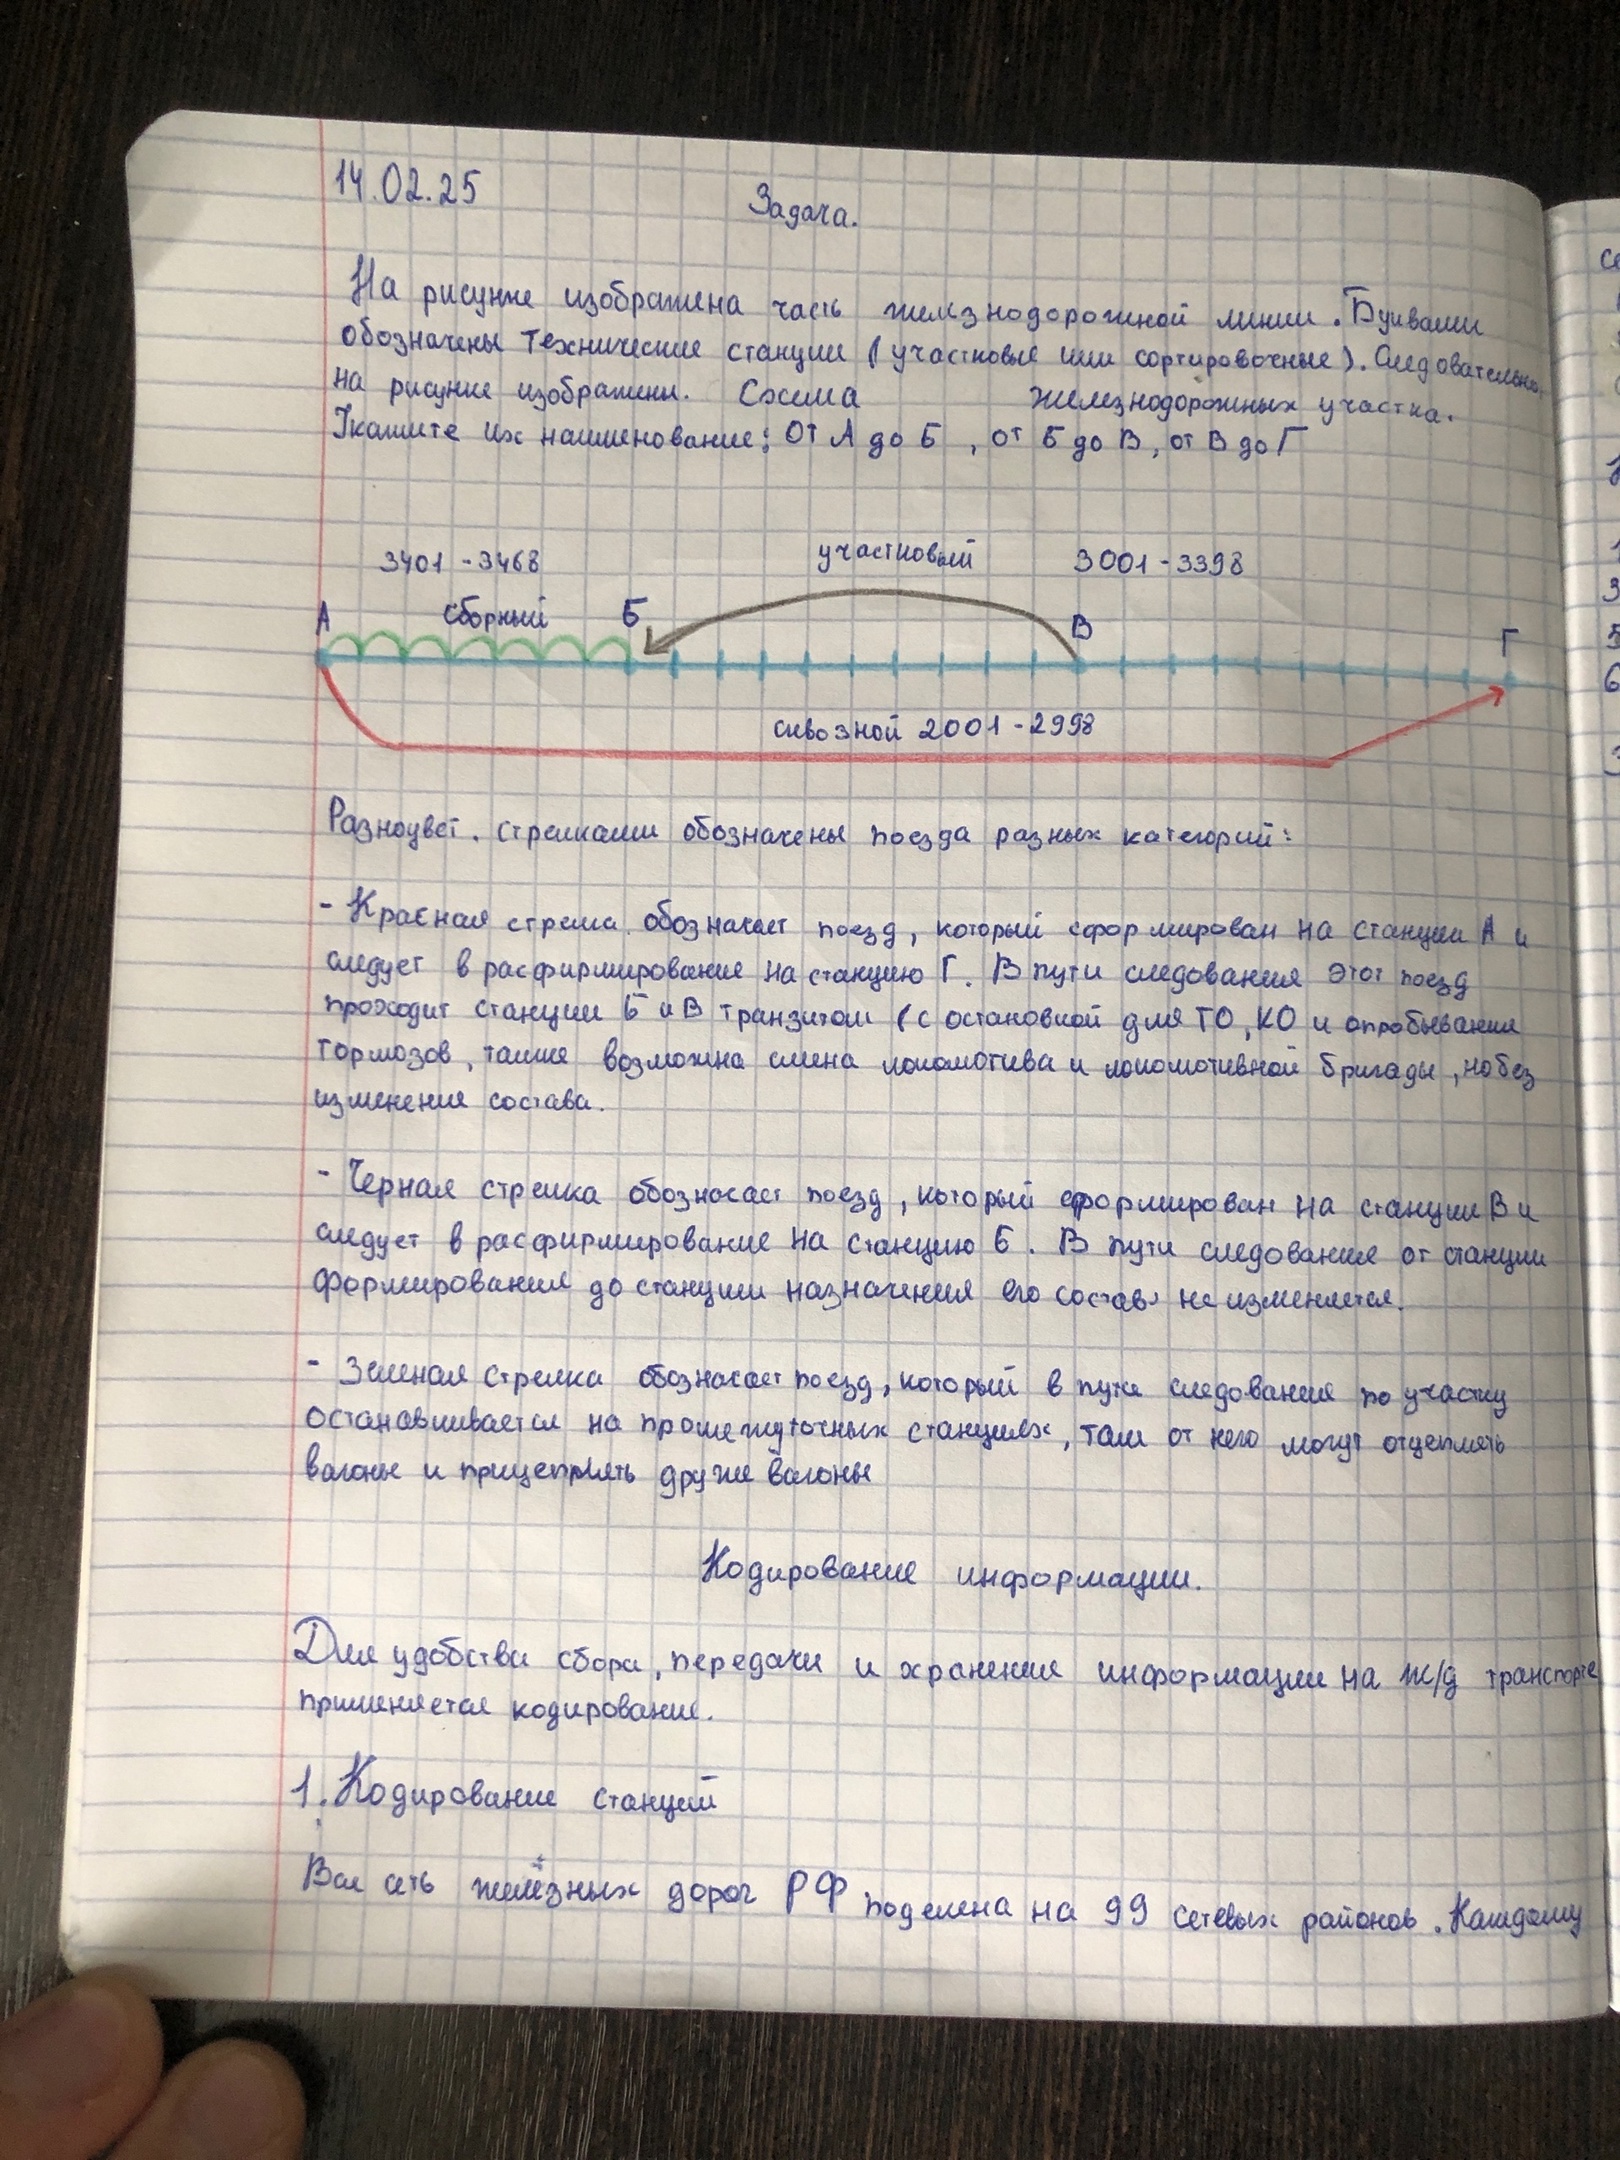 14.02.25
Задача.
На рисунке изображена часть железнодорожной линии. Буквами
обозначены технические станции (участковые или сортировочные). Следовательно,
на рисунке изображены. Схема железнодорожных участка.
Укажите их наименование: От А до Б , от Б до В, от В до Г
3401 - 3468 участковый 3001 - 3398
А сборный Б В Г
сквозной 2001 - 2998
Разноцвет. стрелками обозначены поезда разных категорий:
- Красная стрелка обозначает поезд, который сформирован на станции А и
следует в расфирмирование на станцию Г. В пути следования этот поезд
проходит станции Б и В транзитом (с остановкой для ТО, КО и опробывания
тормозов, также возможна смена локомотива и локомотивной бригады, но без
изменения состава.
- Черная стрелка обозначает поезд, который сформирован на станции В и
следует в расфирмирование на станцию Б. В пути следования от станции
формирования до станции назначения его состав не изменяется.
- Зеленая стрелка обозначает поезд, который в пути следования по участку
останавливается на промежуточных станциях, там от него могут отцеплять
вагоны и прицеплять другие вагоны
Кодирование информации.
Для удобства сбора, передачи и хранения информации на ж/д транспорте
применяется кодирование.
1. Кодирование станций
Вся сеть железных дорог РФ поделена на 99 сетевых районов. Каждому